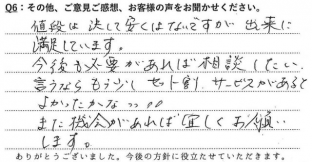 Q6：その他、ご意見ご感想、お客様の声をお聞かせください。
値段は決して安くはないですが出来に
満足しています。
今後も必要があれば相談したい。
言うならもう少しセット割、サービスがあると
よかったかなっ。。
また機会があれば宜しくお願い
します。
ありがとうございました。今後の方針に役立たせていただきます。